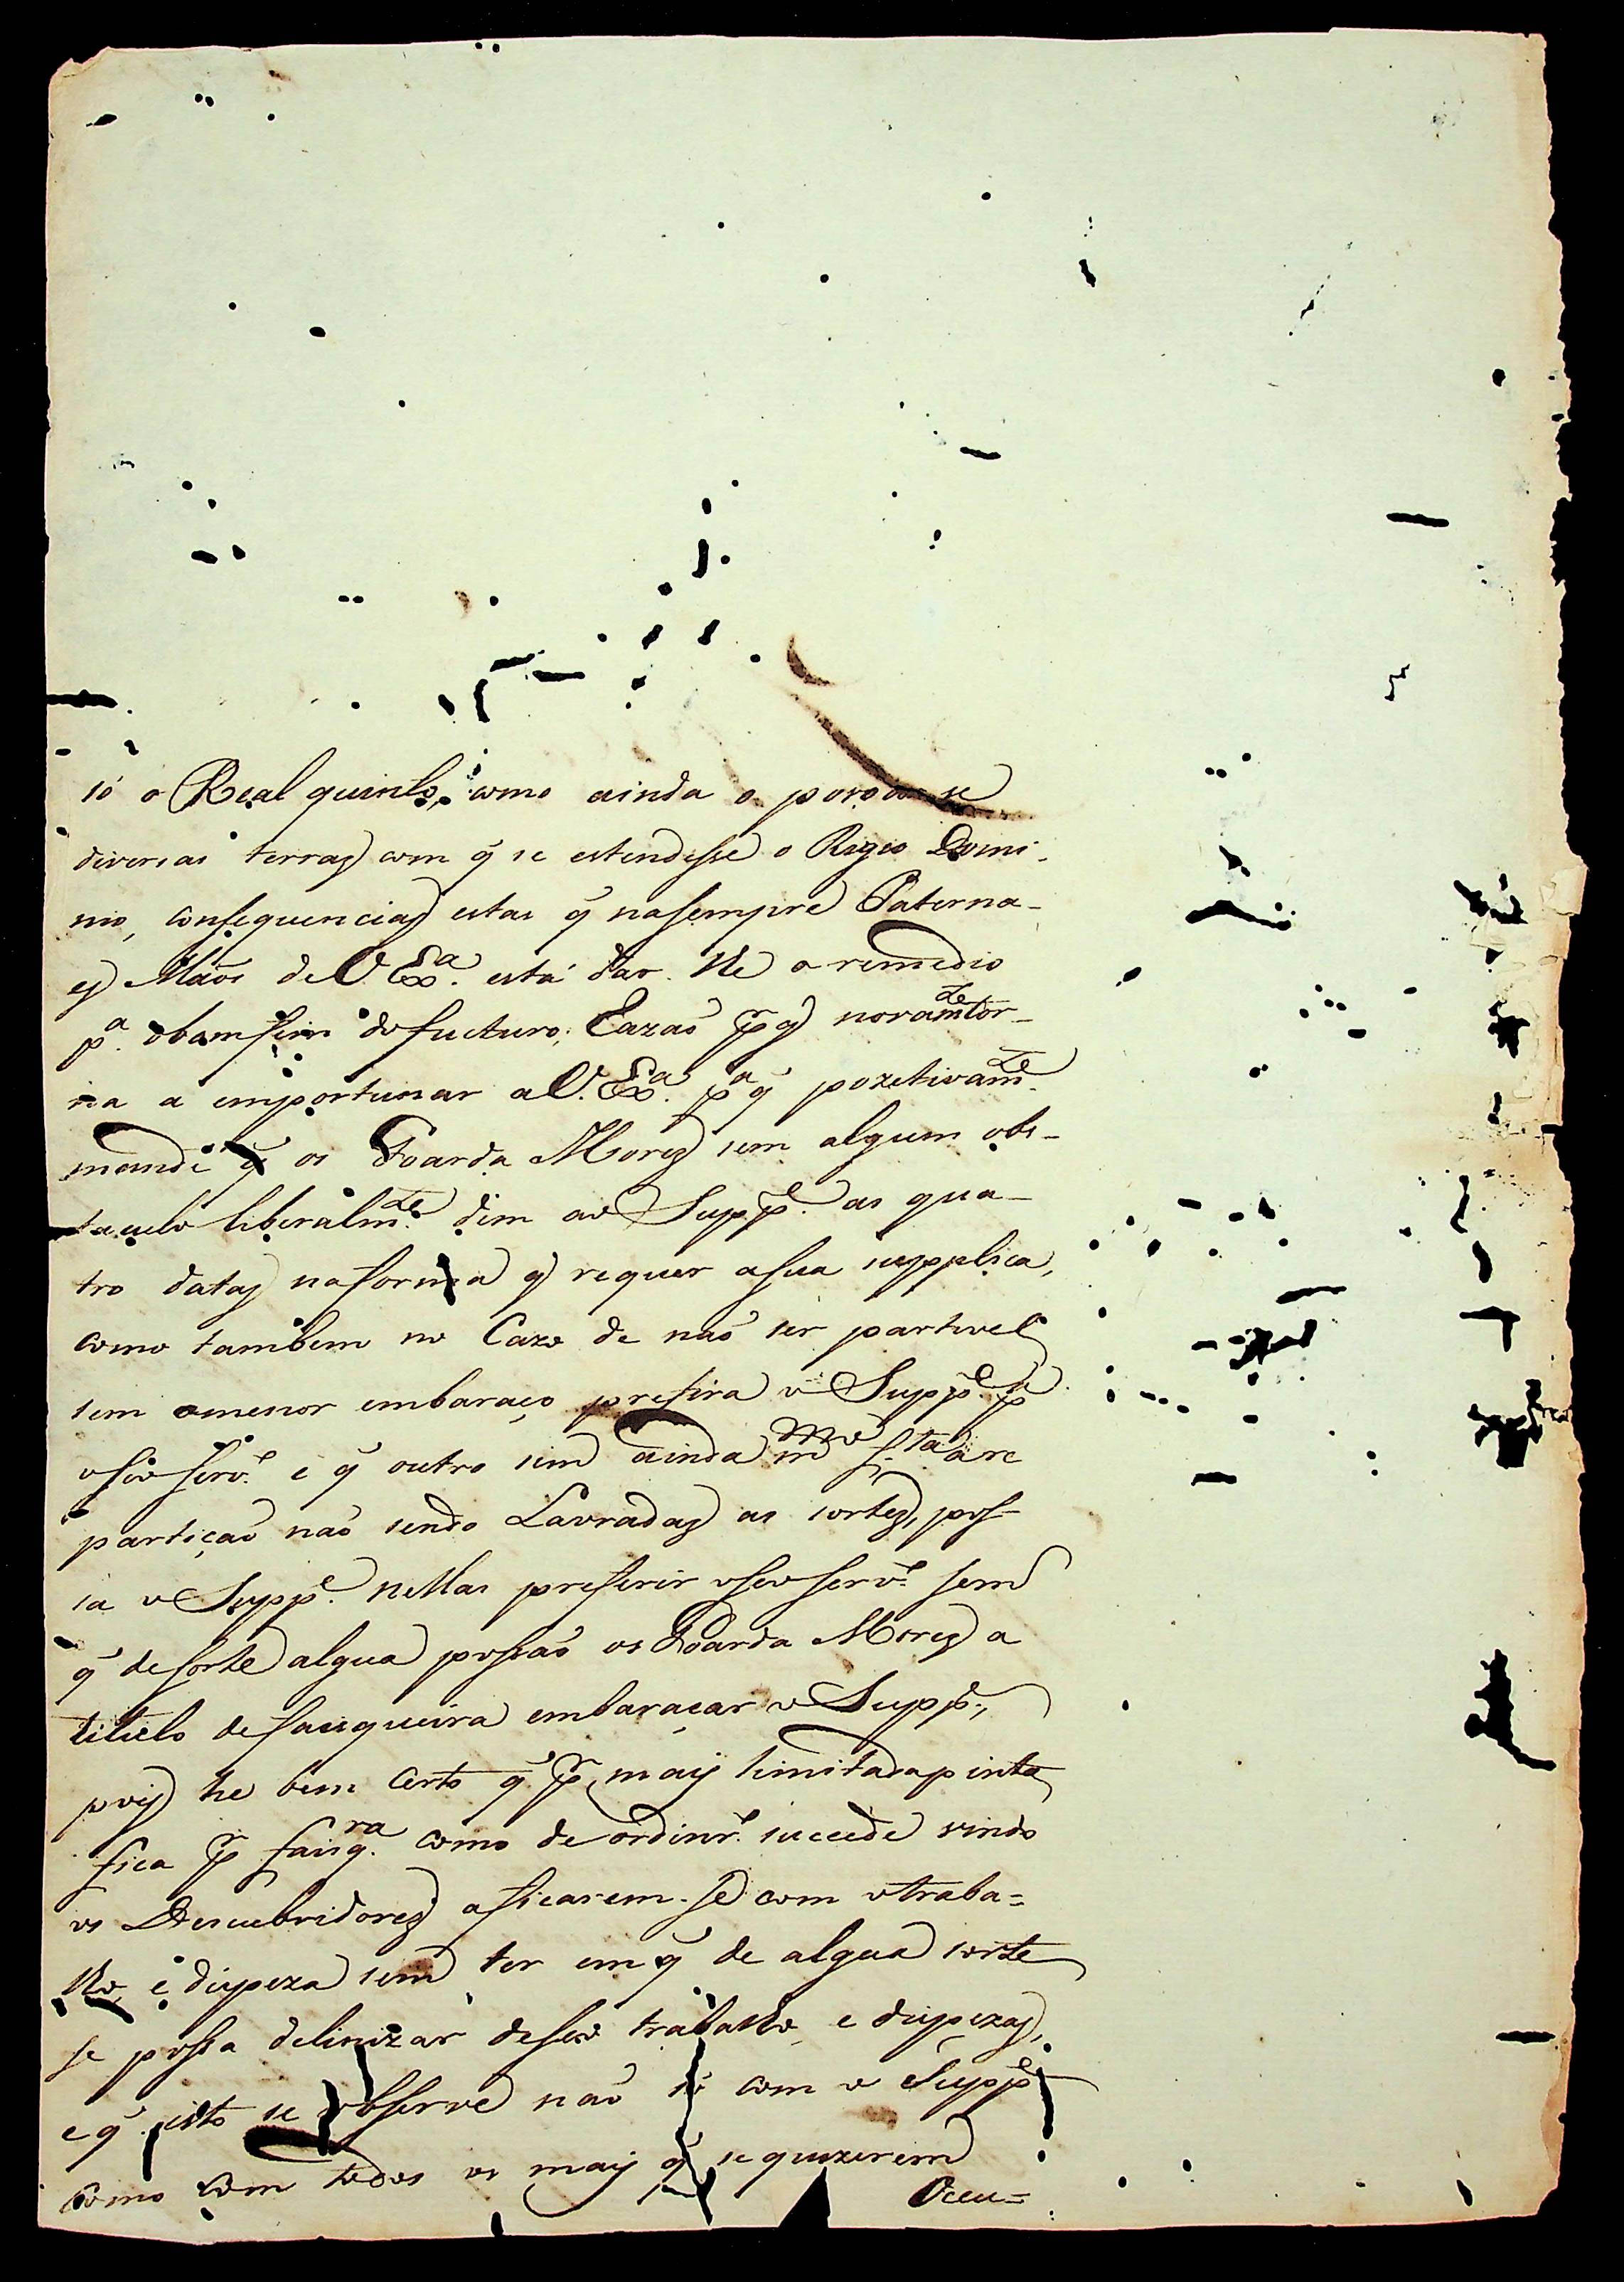 só o Real quinto, como ainda o povoar se
diversas terras com q̃ se estendesse o Regio Domi-
nio, consequencias estas q̃ nasempre Paterna-
es Maõs de V. Exª. está dar. He o remedio
pª. obom fim dofucturo; Razaõ p̃ q̃ novamte tor-
na a emportunar a V. Exª. pª q̃ pozetivamte
mande q̃ os Goarda Mores sem algum obs-
taculo liberalmte. dem ao Suppe. as qua-
tro datas naforma q̃ requer asua supplica,
como tambem no Cazo de naõ ser partivel
sem omenor embaraço prefira o Suppe. p̃
oseo servo. e q̃ outro sim ainda mmo fta a re
partiçaõ naõ sendo Lavradas as sortes, pos-
sa o Suppe. nellas preferir oseo servo. sem
q̃ desorte algua possaõ os Goarda Mores a
titulo defaisqueira embaraçar o Suppe.,
pois he bem certo q̃ p̃ mais limitada pinta
fica p̃ faisqra. como de ordinro. succede vindo
os Descubridores aficarem-se com otraba=
lho, e dispeza sem ter em q̃ de algua sorte
se possa delinizar deseo trabalho, e dispezas,
e q̃ isto se observe naõ só com o Suppe
como com todos os mais q̃ se quizerem
Occu=